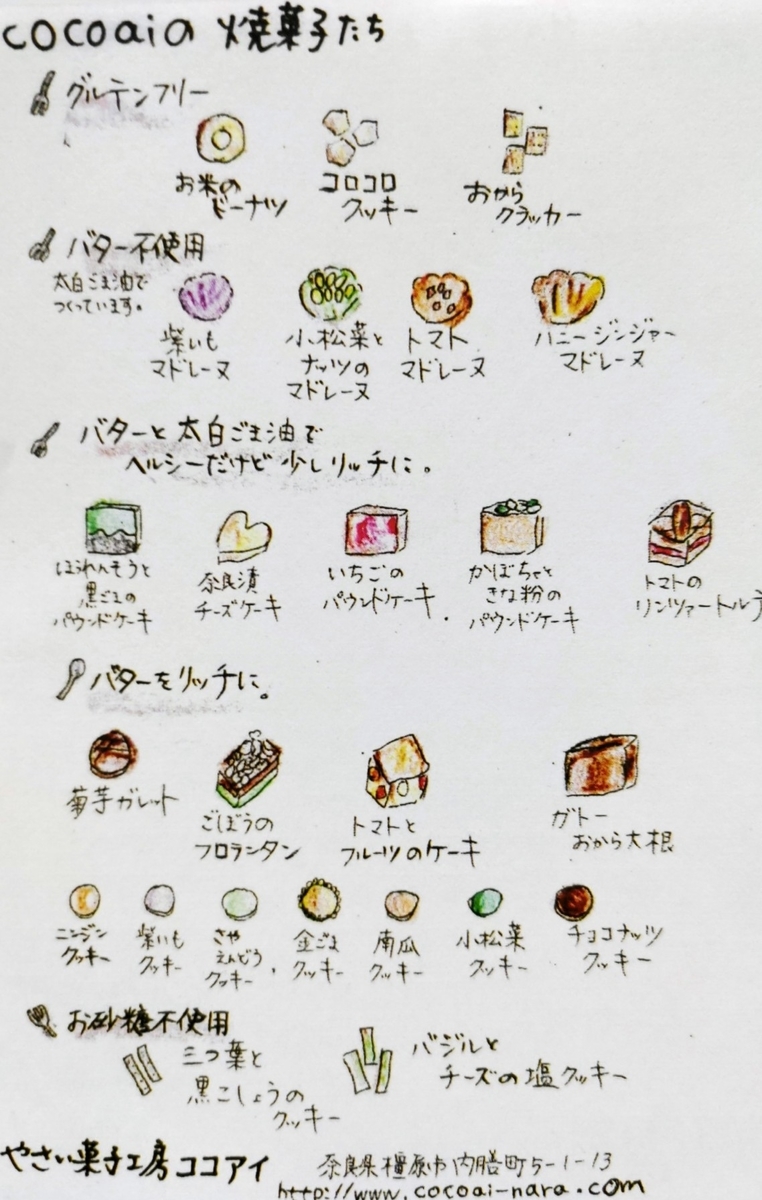 cocoaiの 焼菓子たち
グルテンフリー
お米の
ドーナツ
コロコロ
クッキー
おから
クラッカー
バター不使用
太白ごま油で
つくっています。
紫いも
マドレーヌ
小松菜と
ナッツの
マドレーヌ
トマト
マドレーヌ
ハニージンジャー
マドレーヌ
バターと太白ごま油で
ヘルシーだけど少しリッチに。
ほうれんそうと
黒ごまの
パウンドケーキ
奈良漬
チーズケーキ
いちごの
パウンドケーキ
かぼちゃと
きな粉の
パウンドケーキ
トマトの
リンツァートルテ
バターをリッチに。
菊芋ガレット
ごぼうの
フロランタン
トマトと
フルーツのケーキ
ガトー
おから大根
ニンジン
クッキー
紫いも
クッキー
さや
えんどう
クッキー
金ごま
クッキー
南瓜
クッキー
小松菜
クッキー
チョコナッツ
クッキー
お砂糖不使用
三つ葉と
黒こしょうの
クッキー
バジルと
チーズの塩クッキー
やさい菓子工房ココアイ
奈良県橿原市内膳町5-1-13
http://www.cocoai-nara.com